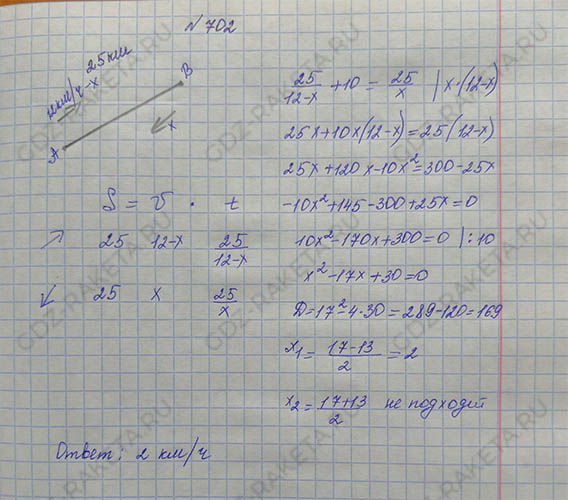 № 702
25 км
12 км/ч -x
B
x
A
S = v · t
↗ 25 12-x 25/(12-x)
↙ 25 x 25/x
25/(12-x) + 10 = 25/x | x·(12-x)
25x+10x(12-x)=25(12-x)
25x+120x-10x²=300-25x
-10x²+145-300+25x=0
10x²-170x+300=0 |:10
x²-17x+30=0
D=17²-4·30=289-120=169
x₁ = (17-13)/2 = 2
x₂ = (17+13)/2 не подходит
Ответ: 2 км/ч
GDZ-RAKETA.RU